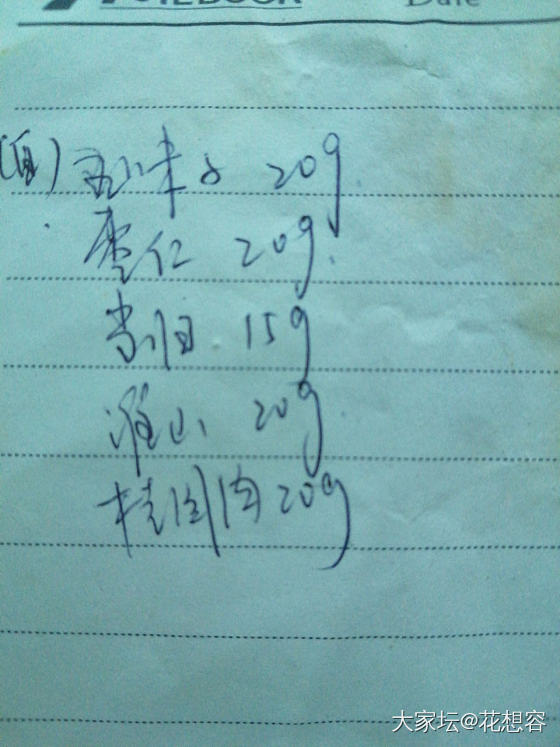 NOTEBOOK Date
五味子 20g
枣仁 20g
当归 15g
淮山 20g
桂圆肉 20g
大家坛@花想容